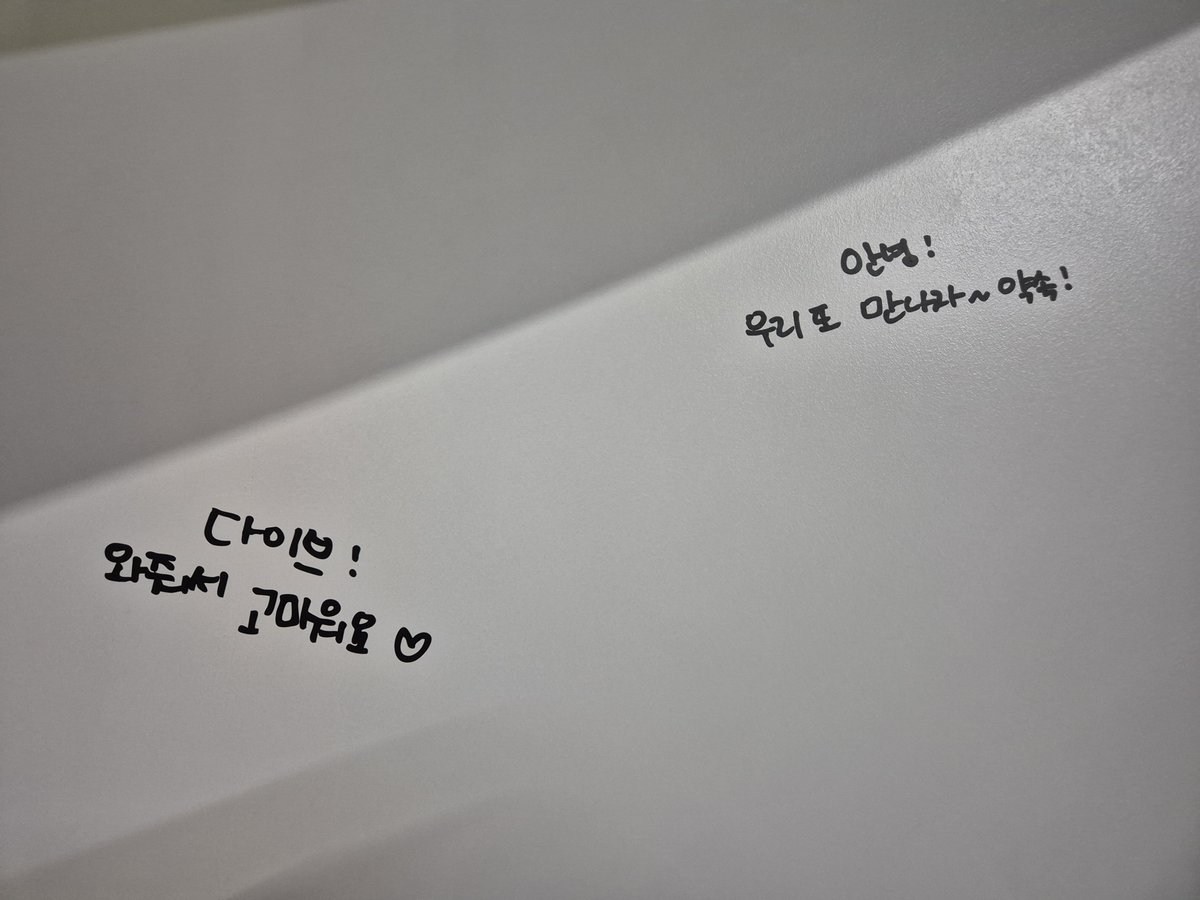 안녕!
우리 또 만나자~ 약속!
다이브!
와줘서 고마워요 ♡